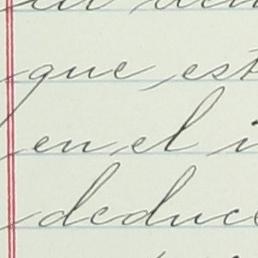 que est
en el i
deduce